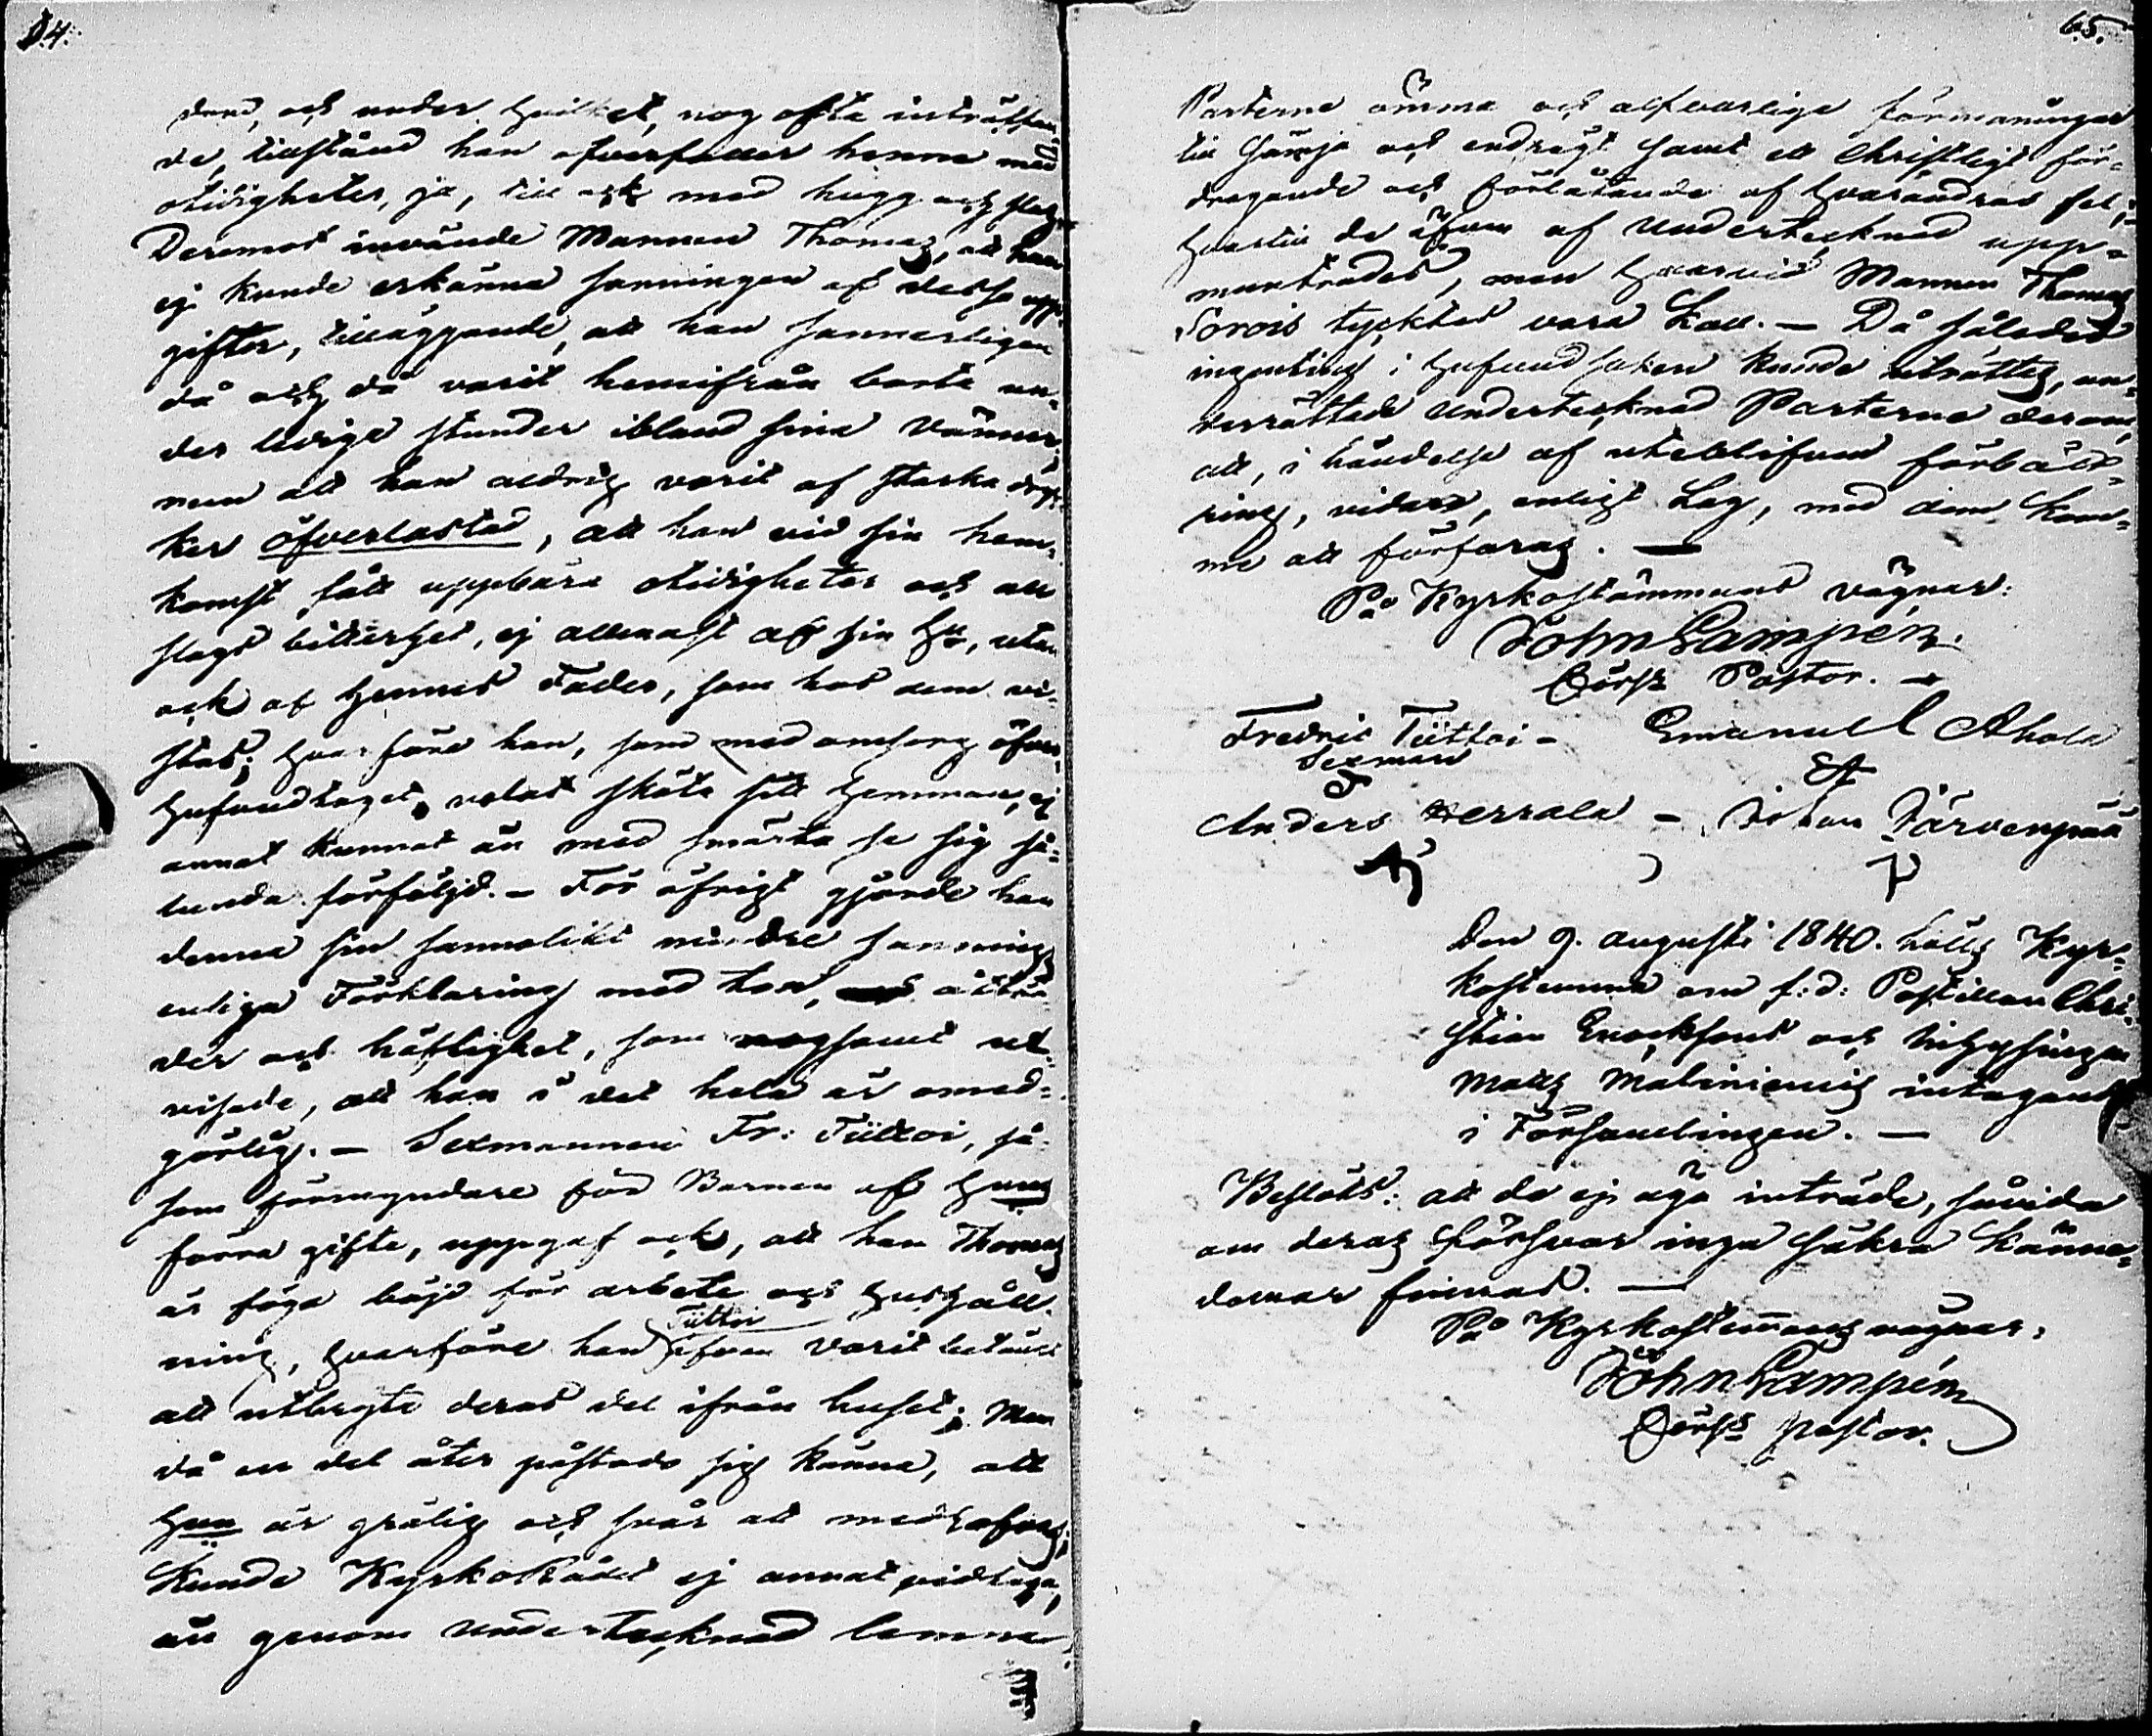 64.
dend, och under hvilket, nog ofta inträffan-
de, tillstånd han öfverfaller henne med
otidigheter, ja, till och med hugg och slag.
Deremot invände Mannen Thomas, att han
ej kunde erkänna sanningen af dessa upp-
gifter, tilläggande, att han sannerligen
då och då varit hemifrån borta un-
der lediga stunder ibland sina Vänner,
men att han aldrig varit af starka dryc-
ker öfverlastad, att han vid sin hem-
komst fått uppbära otidigheter och all
slags bitterhet, ej allenast af sin Hu, utan
ock af hennes Fader, som hos dem vi-
stas; hvarföre han, som med omsorg öfver
hufvudtaget velat sköta sitt hemman, ej
annat kunnat än med smärta se sig så-
lunda förföljd. - För öfrigt gjorde han
denna sin sannolikt mindre sannings
enliga Förklaring med ton, åtbör
der och häftighet, som nogsamt ut-
visade, att han i det hela är omed-
görlig. - Sexmannen Fr: Tüttoi, så-
som förmyndare för Barnen af hans
förra gifte, uppgaf ock, att han Thomas
är föga böjd för arbete och hushåll-
ning, hvarföre han Tüttoi äfven varit betänkt
att utbryta deras del ifrån huset; Men
då en del åter påstods sig känna, att
hon är grälig och svår att medhafvas;
Kunde KyrkoRådet ej annat vidtaga,
än genom undertecknad lemna
65.
Parterne ömma och alfvarliga förmaningar
till sämja och endrägt samt ett Christligt för-
dragande och förlåtande af hvarandras fel;
hvartill de äfven af Undertecknad upp-
muntrades, men hvarvid Mannen Thomas
Sorois tycktes vara kall. - Då således
ingenting i hufvudsaken kunde uträttas, un-
derrättade Undertecknad Parterne derom,
att, i händelse af utebliven förbätt-
ring, vidare, enligt Lag, med dem kom-
me att förfaras. -
På Kyrkostämmans vägnar:
John Lampén.
Pastor. -
Fredric Tüttoi - Emanuel Ahola
Sexman
Anders Herrala - Johan Järvenpää
Den 9. augusti 1840. hölls Kyr-
kostemma om f:d: Postillon Chri-
stian Enocksons och Inhysingen
Matts Malinieniis intagande
i Församlingen. -
Beslöts: att de ej äga inträde, såvida
om deras försvar inga säkra känne-
domar finnas. -
På Kyrkostemmans vägnar:
John Lampén
Pastor.